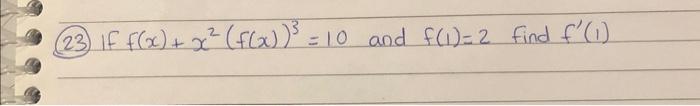 (23) If f(x) + x² (f(x))³ = 10 and f(1)=2 find f'(1)